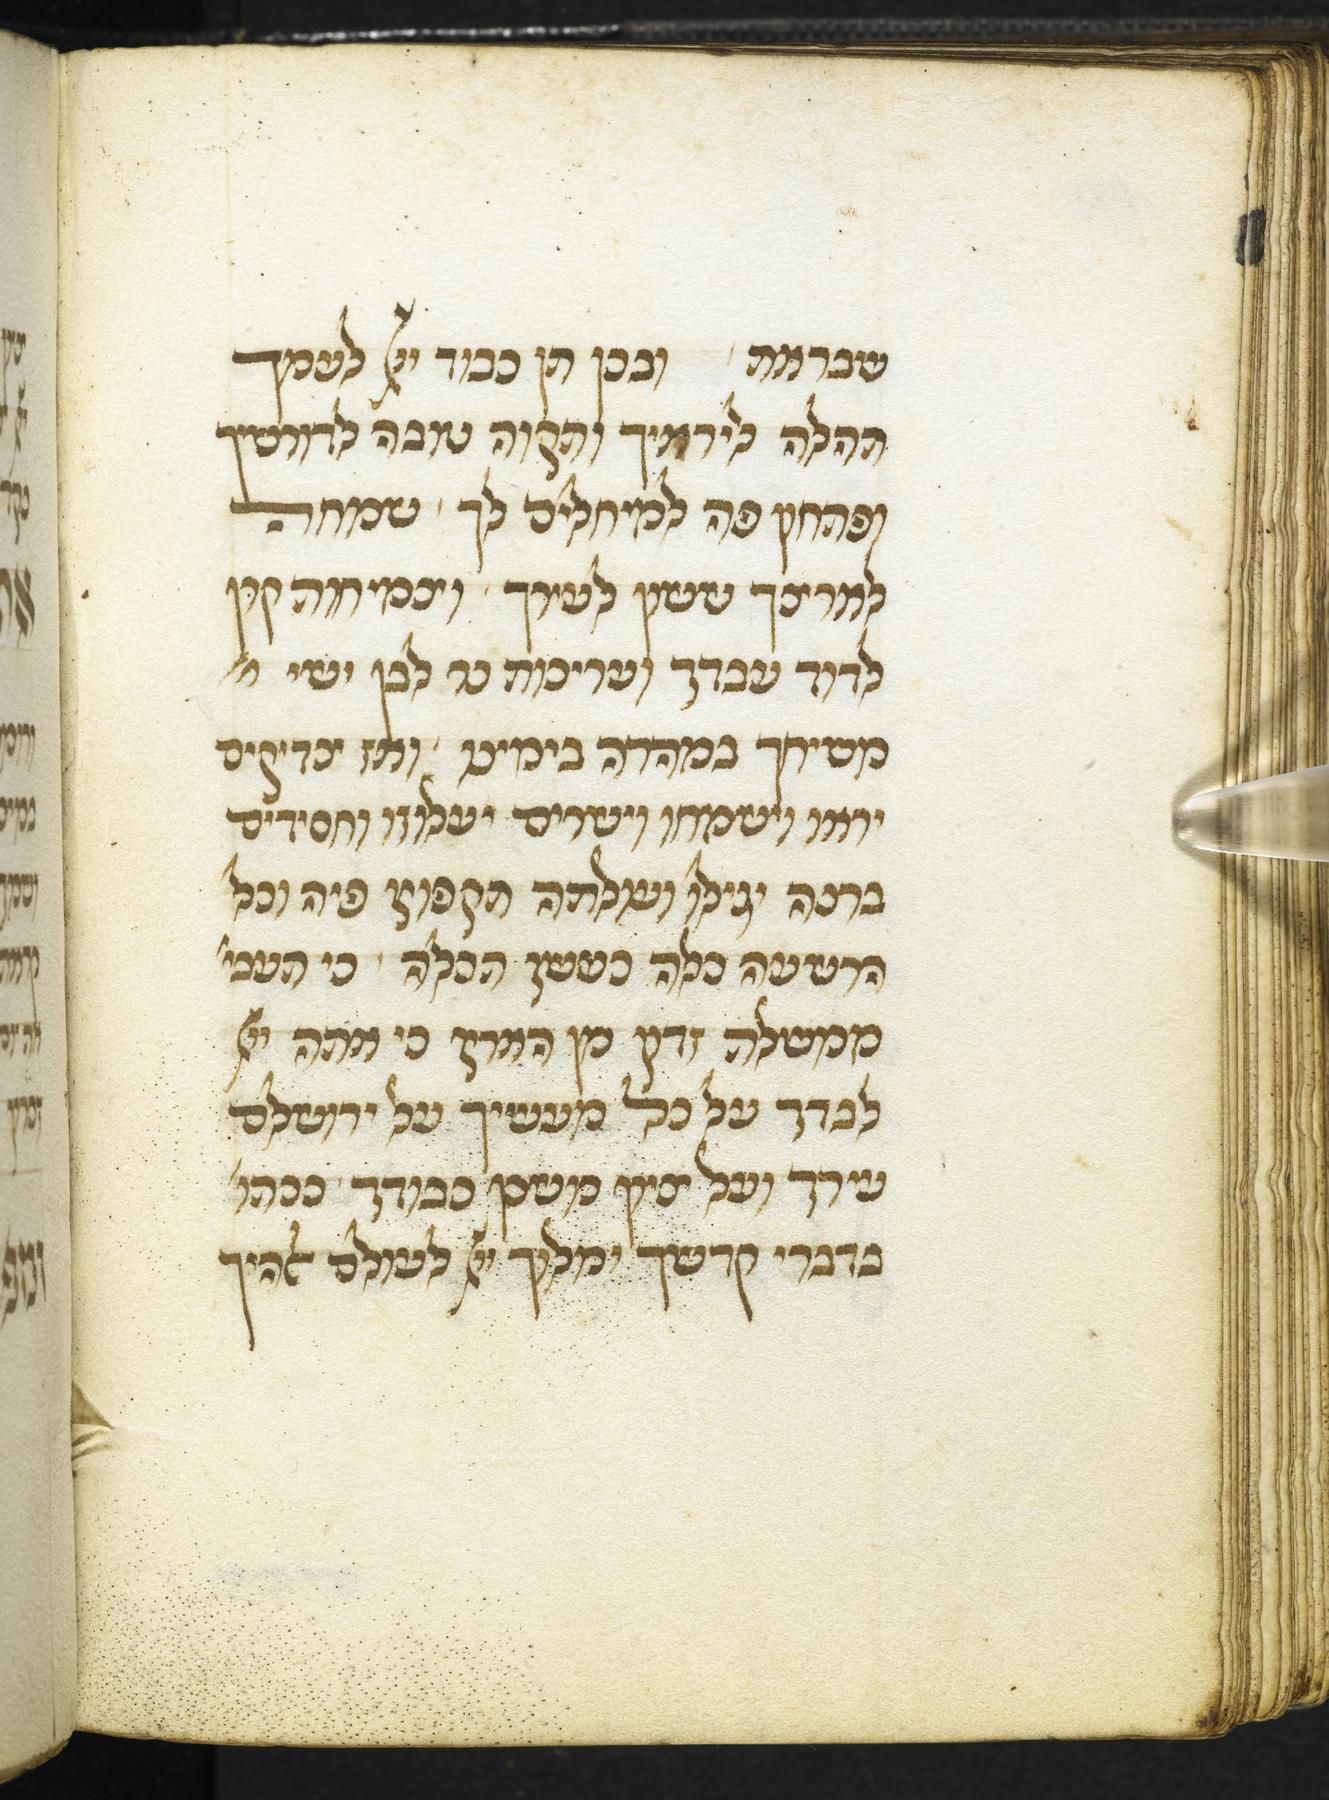 שבראת ׳ ובכן תן כבוד ייי לעמך
תהלה ליראיך ותקוה טובה לדורשיך
ופתחון פה למיחלים לך ׳ שמחה
לארצך ששון לעירך ׳ וצמיחות קרן
לדוד עבדך ועריכות נר לבן ישי
משיחך במהרה בימינו ׳ ואז צדיקים
יראו וישמחו וישרים יעלוזו וחסידים
ברנה יגילו ועולתה תקפוץ פיה וכל
הרשעה כלה כעשן תכלה ׳ כי תעבי׳
ממשלת זדון מן הארץ כי אתה ייי
לבדך על כל מעשיך על ירושלם
עירך ועל ציון משכן כבודך ׳ ככתו׳
בדברי קדשך ימלוך ייי לעולם אלהיך